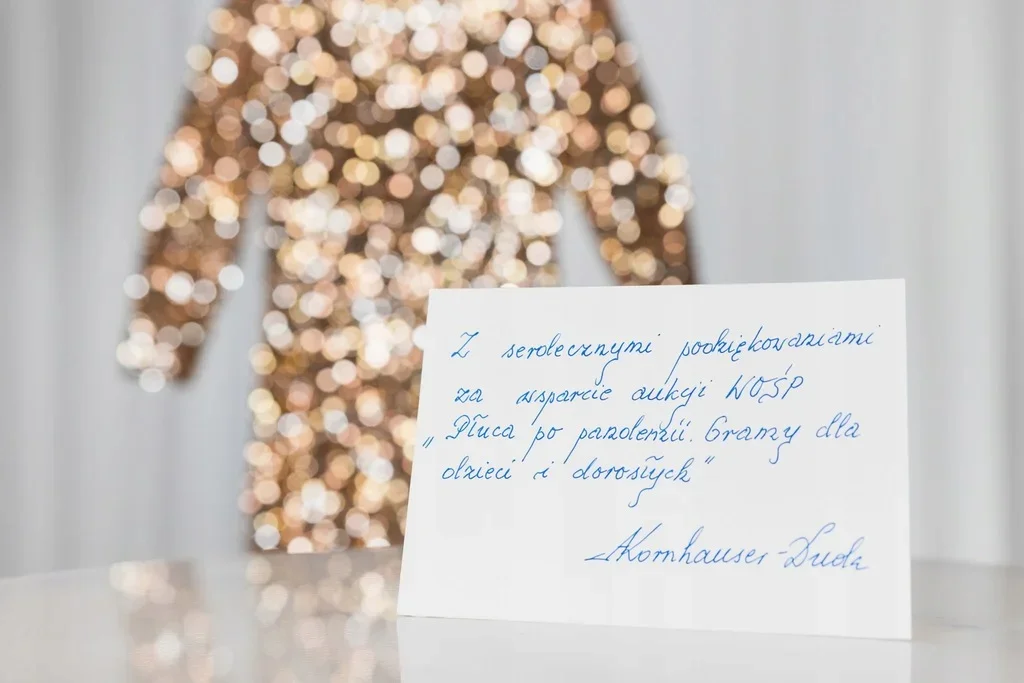 Z serdecznymi podziękowaniami
za wsparcie aukcji WOŚP
„Płuca po pandemii. Gramy dla
dzieci i dorosłych”
AKornhauser-Duda